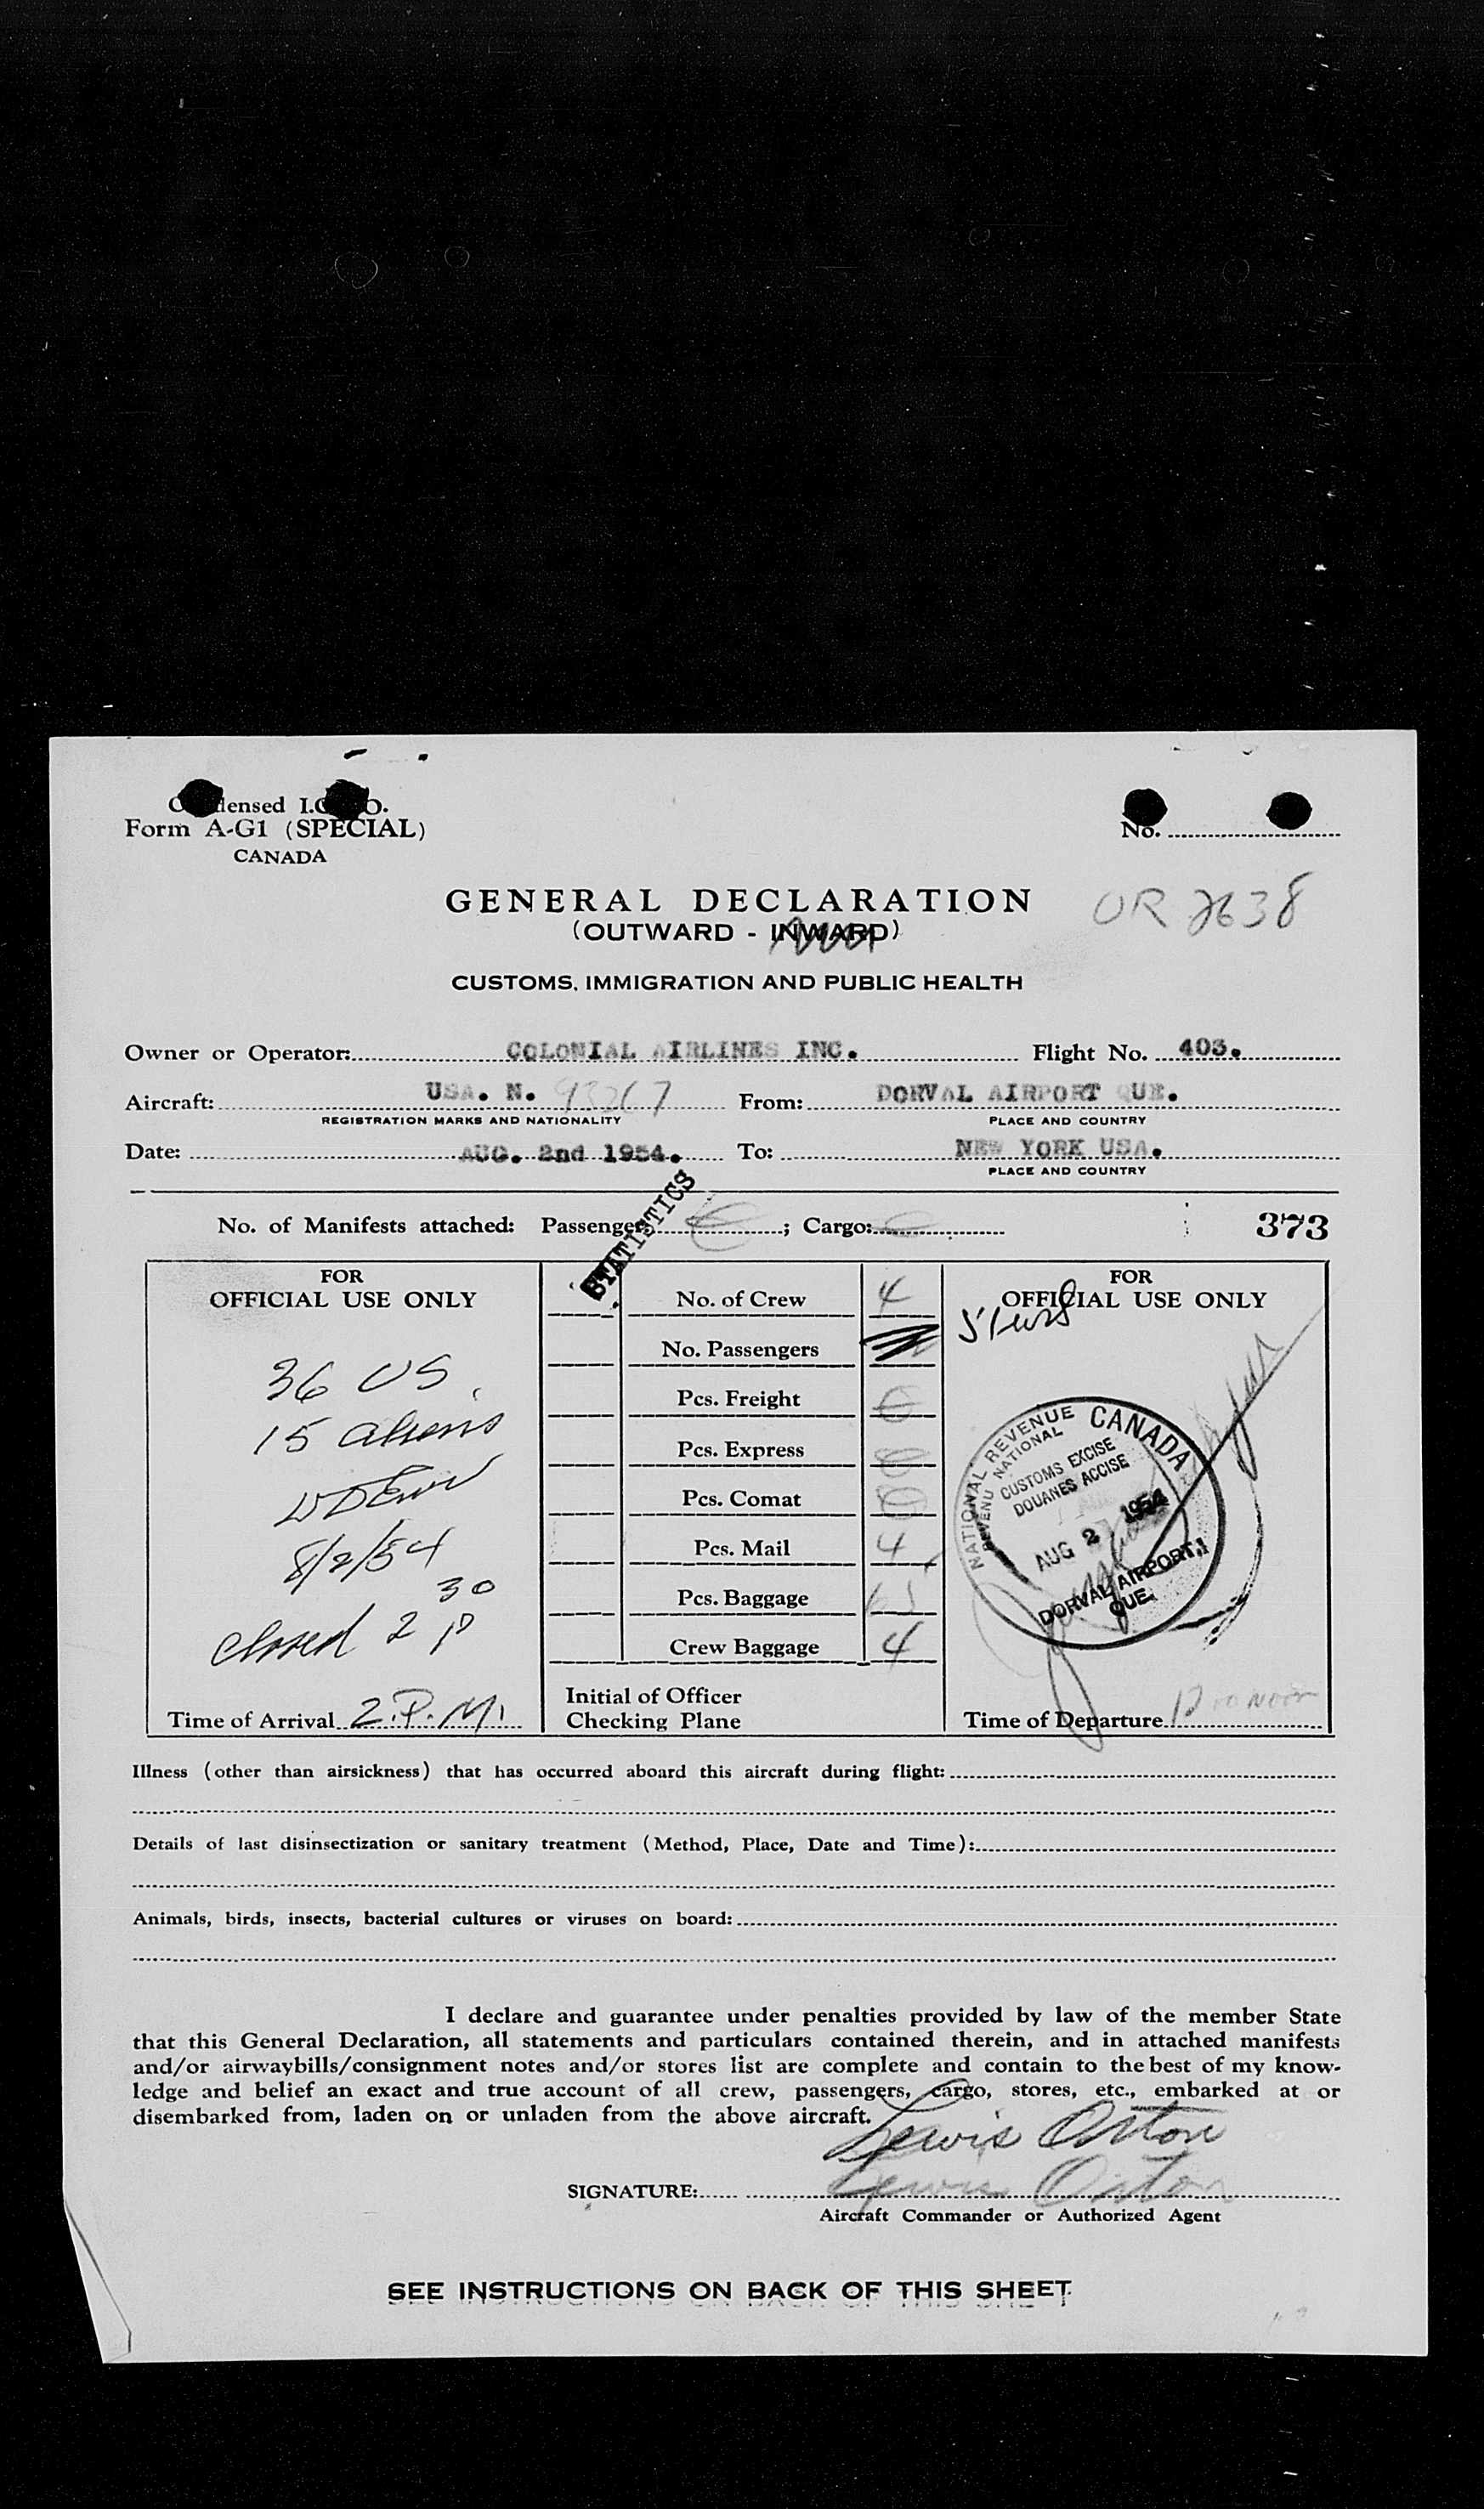 Condensed I.C.A.O.
Form A-G1 (SPECIAL)
CANADA
No.
GENERAL DECLARATION
(OUTWARD - INWARD)
OR 2638
CUSTOMS, IMMIGRATION AND PUBLIC HEALTH
Owner or Operator: COLONIAL AIRLINES INC. Flight No. 403.
Aircraft: USA. N. 93267 From: DORVAL AIRPORT QUE.
REGISTRATION MARKS AND NATIONALITY PLACE AND COUNTRY
Date: AUG. 2nd 1954. To: NEW YORK USA.
PLACE AND COUNTRY
STATISTICS
No. of Manifests attached: Passenger ; Cargo: 373
FOR
OFFICIAL USE ONLY
36 US
15 aliens
8/2/54
closed 2 30 p
Time of Arrival 2.P.M.
No. of Crew 4
No. Passengers
Pcs. Freight
Pcs. Express
Pcs. Comat
Pcs. Mail 4
Pcs. Baggage
Crew Baggage 4
Initial of Officer
Checking Plane
FOR
OFFICIAL USE ONLY
NATIONAL REVENUE CANADA
REVENU NATIONAL
CUSTOMS EXCISE
DOUANES ACCISE
AUG 2 1954
DORVAL AIRPORT, 1
QUE.
Time of Departure 12 00 noon
Illness (other than airsickness) that has occurred aboard this aircraft during flight:
Details of last disinsectization or sanitary treatment (Method, Place, Date and Time):
Animals, birds, insects, bacterial cultures or viruses on board:
I declare and guarantee under penalties provided by law of the member State
that this General Declaration, all statements and particulars contained therein, and in attached manifests
and/or airwaybills/consignment notes and/or stores list are complete and contain to the best of my know-
ledge and belief an exact and true account of all crew, passengers, cargo, stores, etc., embarked at or
disembarked from, laden on or unladen from the above aircraft.
Lewis Orton
SIGNATURE: Lewis Orton
Aircraft Commander or Authorized Agent
SEE INSTRUCTIONS ON BACK OF THIS SHEET